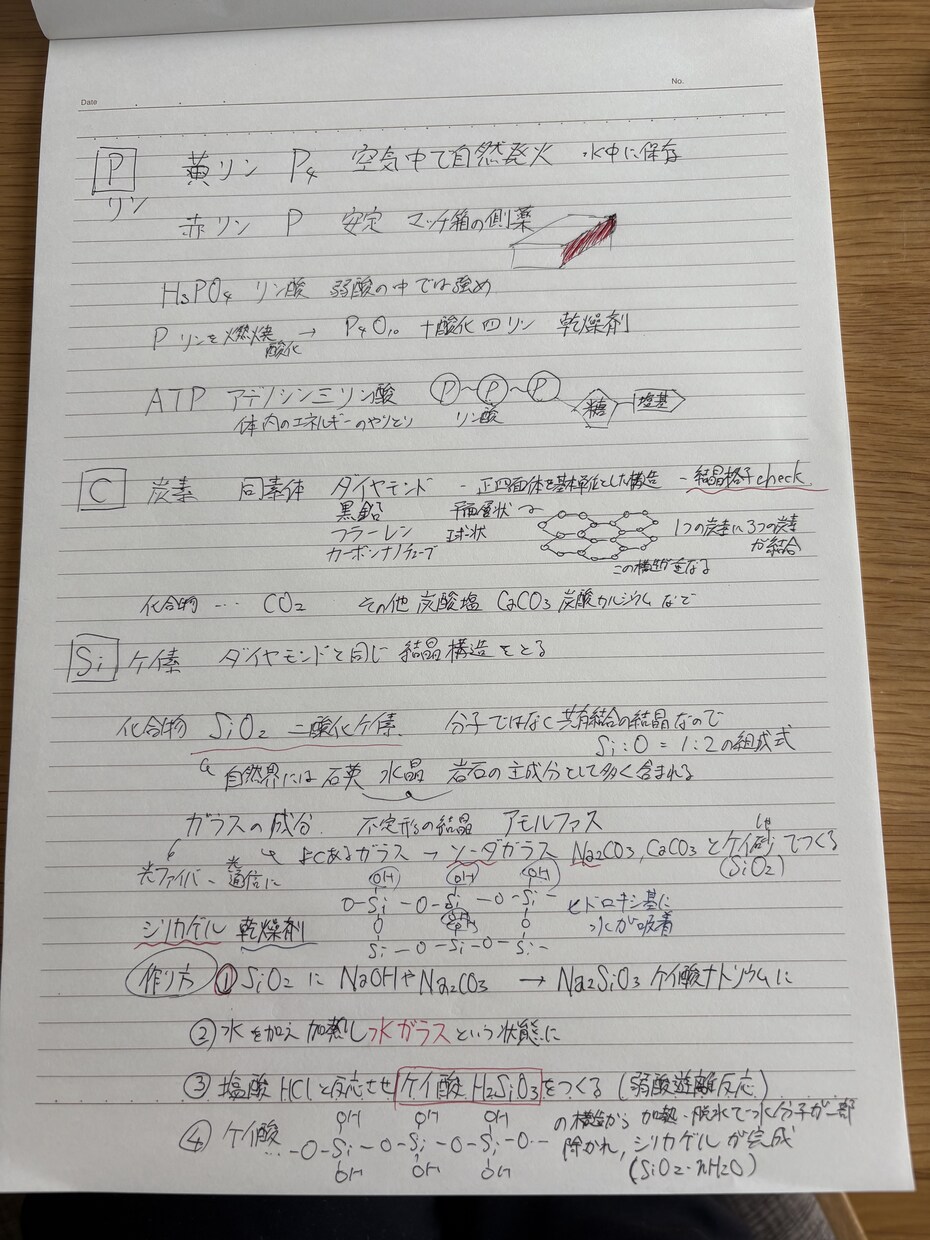 Date
No.
P 黄リン P4 空気中で自然発火 水中に保存
リン
赤リン P 安定 マッチ箱の側薬
H3PO4 リン酸 弱酸の中では強め
P リンを燃焼 → P4O10 十酸化四リン 乾燥剤
酸化
ATP アデノシン三リン酸 P~P~P 糖 塩基
体内のエネルギーのやりとり リン酸
C 炭素 同素体 ダイヤモンド - 正四面体を基本単位とした構造 - 結晶格子check
黒鉛 平面層状
フラーレン 球状 1つの炭素に3つの炭素
カーボンナノチューブ が結合
この構造が重なる
化合物 … CO2 その他 炭酸塩 CaCO3 炭酸カルシウムなど
Si ケイ素 ダイヤモンドと同じ 結晶構造をとる
化合物 SiO2 二酸化ケイ素 分子ではなく共有結合の結晶なので
Si:O=1:2の組成式
自然界には石英 水晶 岩石の主成分として多く含まれる
ガラスの成分. 不定形の結晶 アモルファス
よくあるガラス → ソーダガラス Na2CO3, CaCO3とケイ砂でつくる
しゃ
(SiO2)
光ファイバー 光通信に
OH OH OH
O-Si-O-Si-O-Si- ヒドロキシ基に
O OH O 水が吸着
Si-O-Si-O-Si-
シリカゲル 乾燥剤
作り方 ①SiO2に NaOHやNa2CO3 → Na2SiO3 ケイ酸ナトリウムに
②水を加え加熱し水ガラスという状態に
③塩酸HClと反応させケイ酸 H2SiO3をつくる (弱酸遊離反応)
OH OH OH
④ケイ酸 …-O-Si-O-Si-O-Si-O-… の構造から 加熱・脱水で水分子が一部
OH OH OH 除かれ, シリカゲルが完成
(SiO2・nH2O)